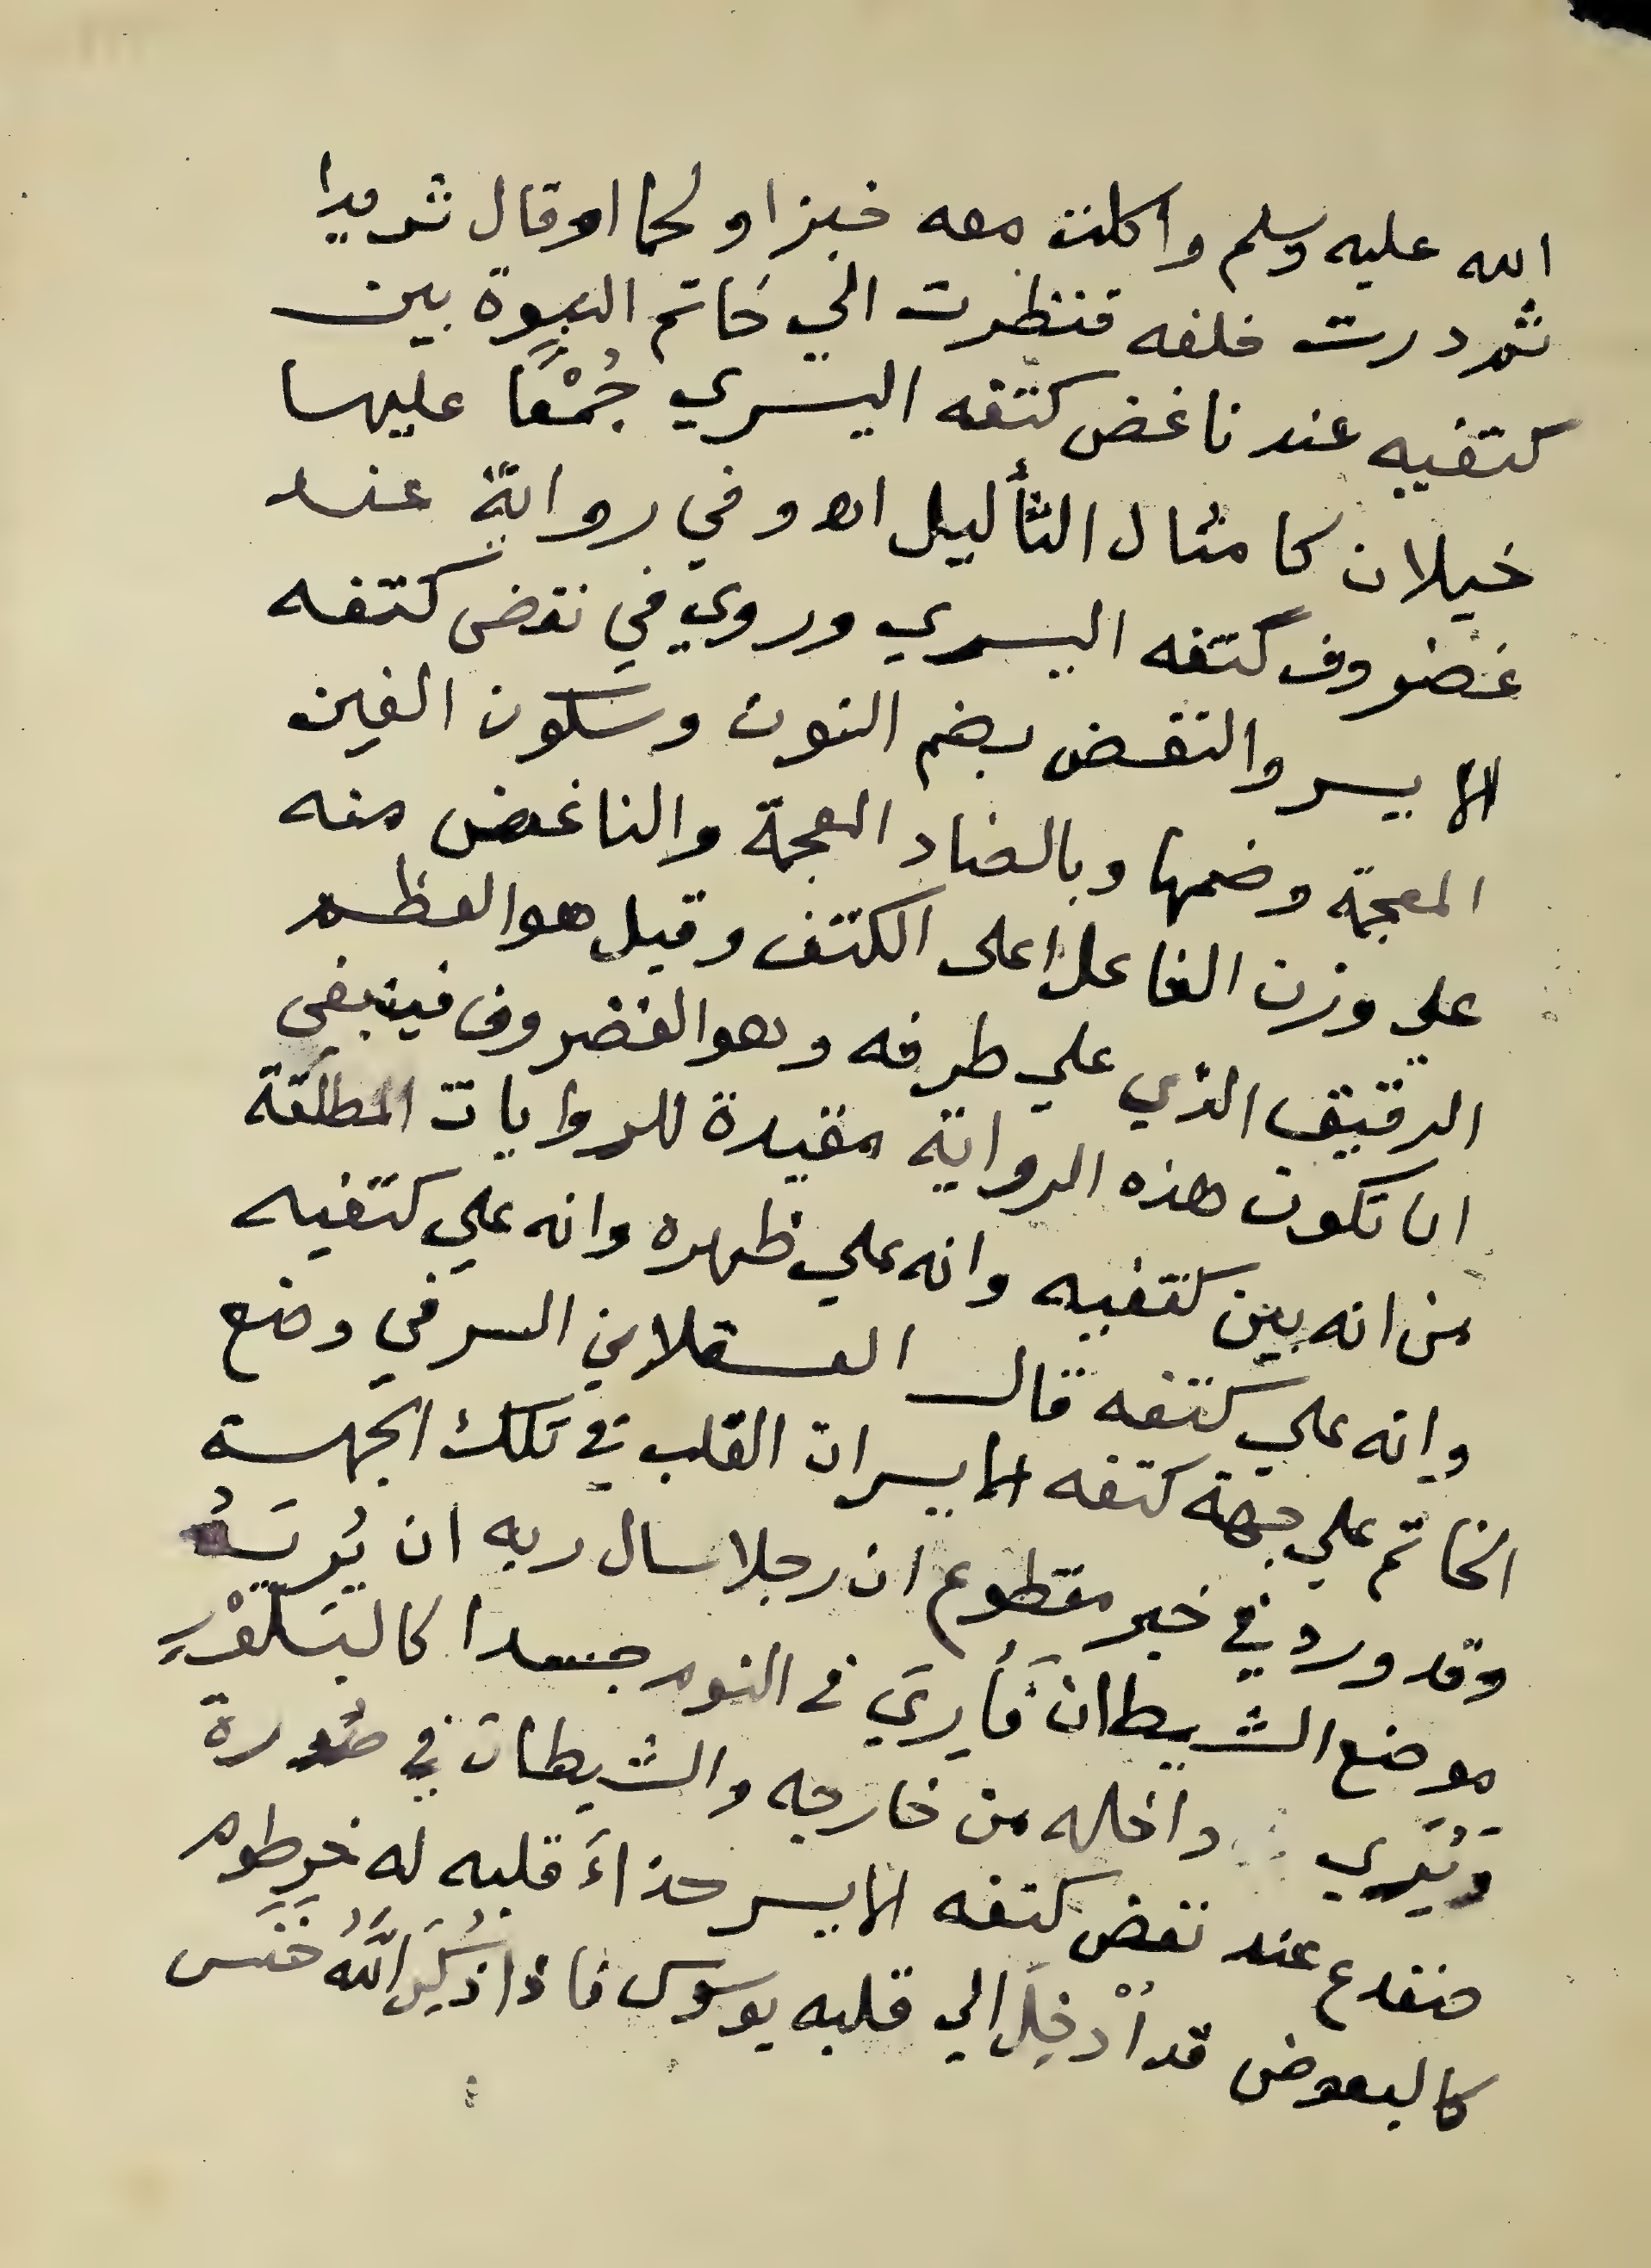 الله عليه وسلم واكلت معه خبزا ولحما او قال ثريدا
ثم درت خلفه فنظرت الي خاتم النبوة بين
كتفيه عند ناغض كتفه اليسري جُمْعًا عليها
خيلان كامثال الثأليل اه وفي رواية عند
غضروف كتفه اليسري وروي في نغض كتفه
الايسر والنغض بضم النون وسكون الغين
المعجمة وضمها وبالضاد المعجمة والناغض منه
علي وزن الفاعل اعلى الكتف وقيل هو العظم
الرقيق الذي علي طرفه وهو الغضروف فينبغي
ان تكون هذه الرواية مقيدة للروايات المطلقة
من انه بين كتفيه وانه علي ظهره وانه علي كتفيه
وانه علي كتفه قال العسقلاني السر في وضع
الخاتم علي جهة كتفه الايسر ان القلب في تلك الجهة
وقد ورد في خبر مقطوع ان رجلا سال ربه ان يُرِيَهُ
موضع الشيطان فَأُرِيَ في النوم جسدا كالبَلُّوْرِ
وَيُرَي داخله من خارجه والشيطان في صُورة
ضفدع عند نغض كتفه الايسر حذاءَ قلبه له خرطوم
كالبعوض قد اُدْخِلَ الي قلبه يوسوس فاذا ذُكِرَ اللّٰهُ خَنَس